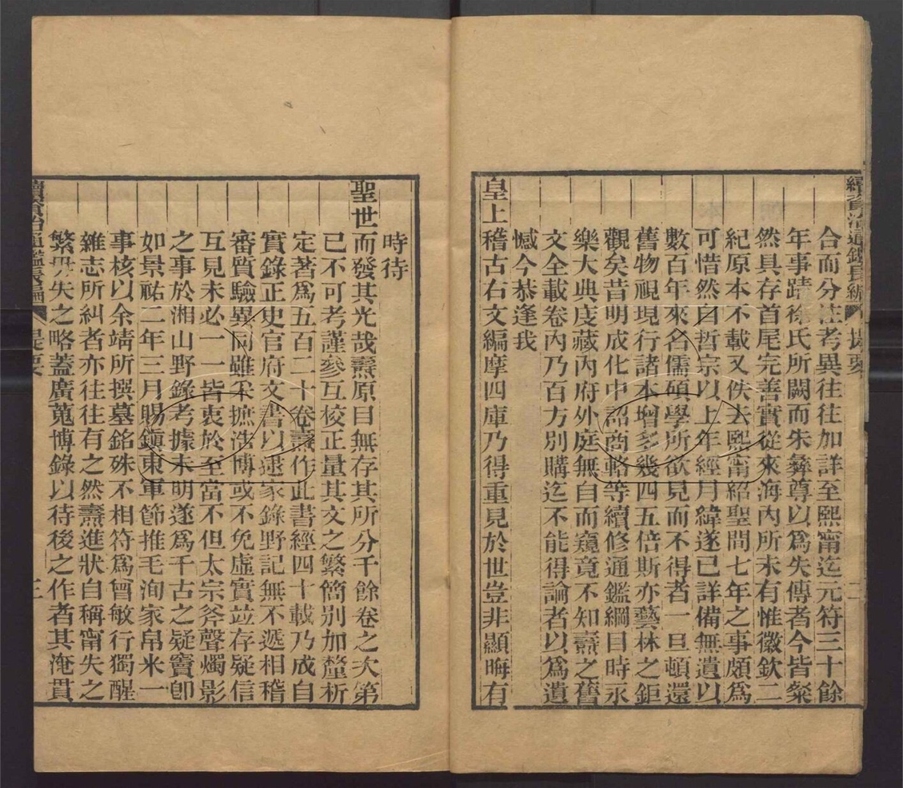 續資治通鑑長編 提要 二
合而分注考異往往加詳至熙甯迄元符三十餘
年事蹟徐氏所闕而朱彝尊以爲失傳者今皆粲
然具存首尾完善實從來海內所未有惟徽欽二
紀原本不載又佚去熙甯紹聖間七年之事頗爲
可惜然自哲宗以上年經月緯遂已詳備無遺以
數百年來名儒碩學所欲見而不得者一旦頓還
舊物視現行諸本增多幾四五倍斯亦藝林之鉅
觀矣昔明成化中詔商輅等續修通鑑綱目時永
樂大典庋藏內府外庭無自而窺竟不知燾之舊
文全載卷內乃百方別購迄不能得論者以爲遺
憾今恭逢我
皇上稽古右文編摩四庫乃得重見於世豈非顯晦有
時待
聖世而發其光哉燾原目無存其所分千餘卷之次第
已不可考謹參互校正量其文之繁簡別加釐析
定著爲五百二十卷燾作此書經四十載乃成自
實錄正史官府文書以逮家錄野記無不遞相稽
審質驗異同雖采摭浩博或不免虛實竝存疑信
互見未必一一皆衷於至當不但太宗斧聲燭影
之事於湘山野錄考據未明遂爲千古之疑竇卽
如景祐二年三月賜鎭東軍節推毛洵家帛米一
事核以余靖所撰墓銘殊不相符爲曾敏行獨醒
雜志所糾者亦往往有之然燾進狀自稱甯失之
繁毋失之略蓋廣蒐博錄以待後之作者其淹貫
續資治通鑑長編 提要 三